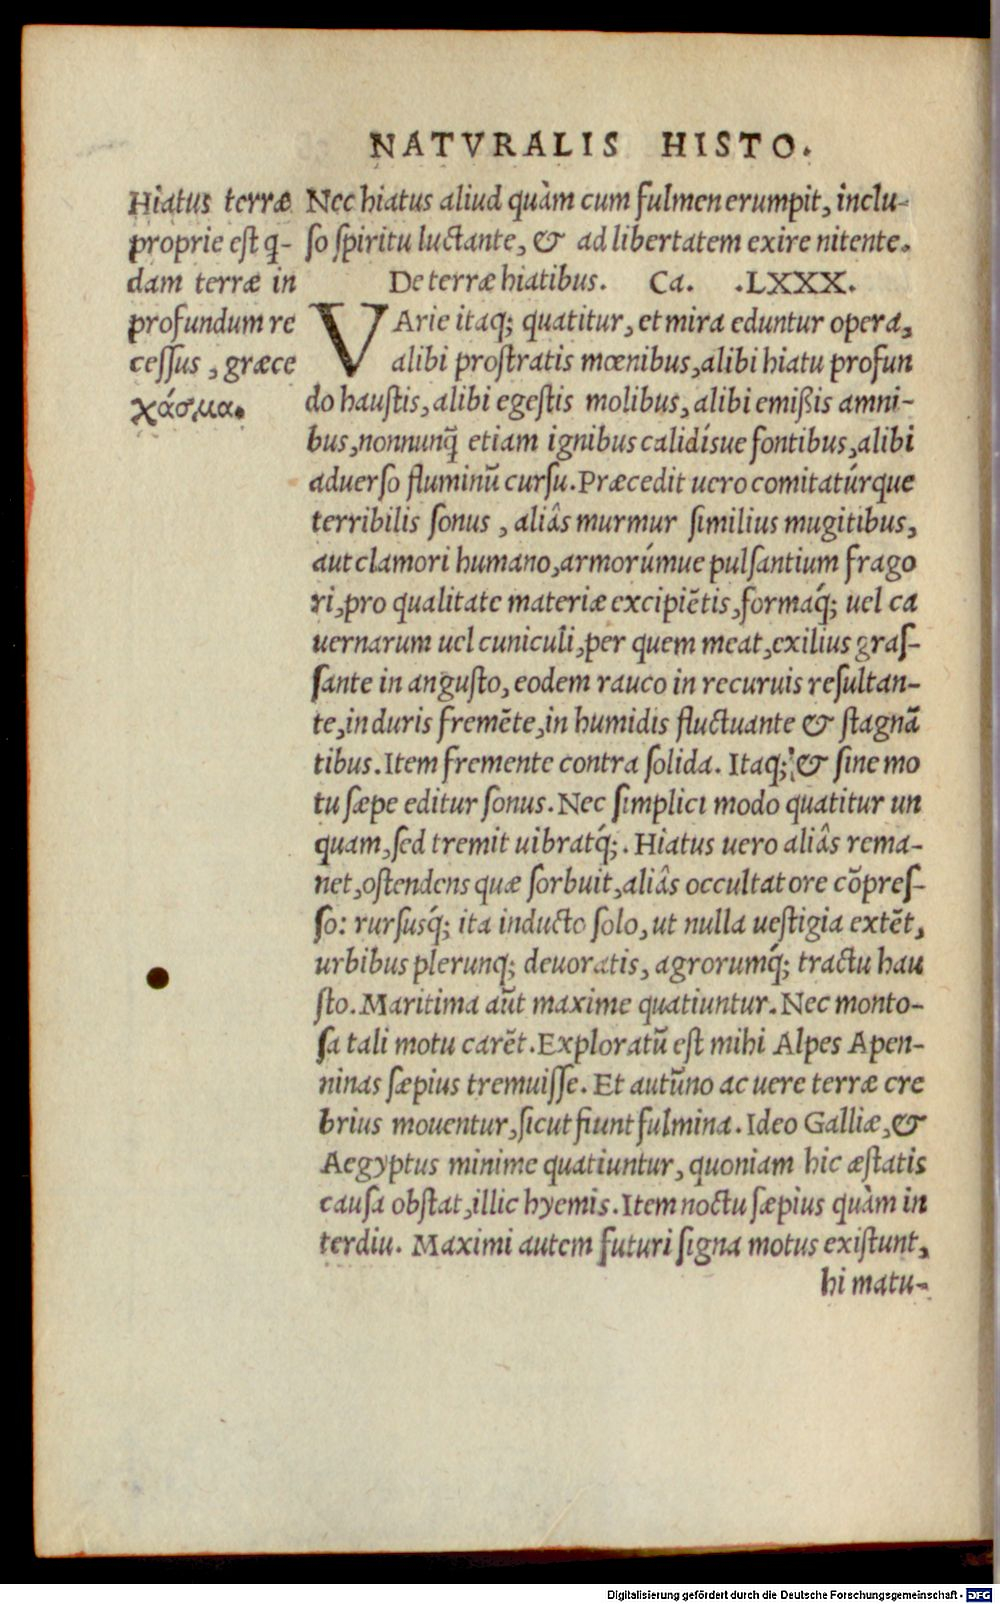 NATVRALIS HISTO.
Hiatus terræ
proprie est q̄-
dam terræ in
profundum re
cessus, græce
χάσμα.
Nec hiatus aliud quàm cum fulmen erumpit, inclu-
so spiritu luctante, & ad libertatem exire nitente.
De terræ hiatibus. Ca. .LXXX.
VArie itaq; quatitur, et mira eduntur opera,
alibi prostratis mœnibus, alibi hiatu profun
do haustis, alibi egestis molibus, alibi emißis amni-
bus, nonnunq̄ etiam ignibus calidísue fontibus, alibi
aduerso fluminū cursu. Præcedit uero comitatúrque
terribilis sonus, aliâs murmur similius mugitibus,
aut clamori humano, armorúmue pulsantium frago
ri, pro qualitate materiæ excipiētis, formaq́; uel ca
uernarum uel cuniculi, per quem meat, exilius gras-
sante in angusto, eodem rauco in recuruis resultan-
te, in duris fremēte, in humidis fluctuante & stagnā
tibus. Item fremente contra solida. Itaq; & sine mo
tu sæpe editur sonus. Nec simplici modo quatitur un
quam, sed tremit uibratq́;. Hiatus uero aliâs rema-
net, ostendens quæ sorbuit, aliâs occultat ore cōpres-
so: rursusq́; ita inducto solo, ut nulla uestigia extēt,
urbibus plerunq; deuoratis, agrorumq́; tractu hau
sto. Maritima aūt maxime quatiuntur. Nec monto-
sa tali motu carēt. Exploratū est mihi Alpes Apen-
ninas sæpius tremuisse. Et autūno ac uere terræ cre
brius mouentur, sicut fiunt fulmina. Ideo Galliæ, &
Aegyptus minime quatiuntur, quoniam hic æstatis
causa obstat, illic hyemis. Item noctu sæpius quàm in
terdiu. Maximi autem futuri signa motus existunt,
hi matu-
Digitalisierung gefördert durch die Deutsche Forschungsgemeinschaft - DFG